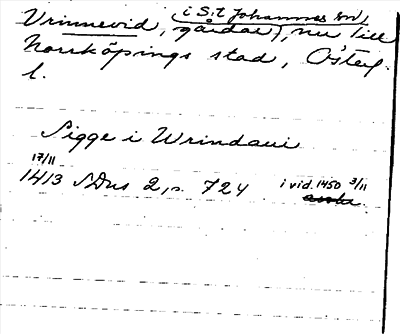 (i S:t Johannes sn,
Vrinnevid, gårdar), nu till
Norrköpings stad, Österg.
l.
Sigge i Wrindaui
17/11
1413 SDns 2, s. 724 i vid. 1450 3/11